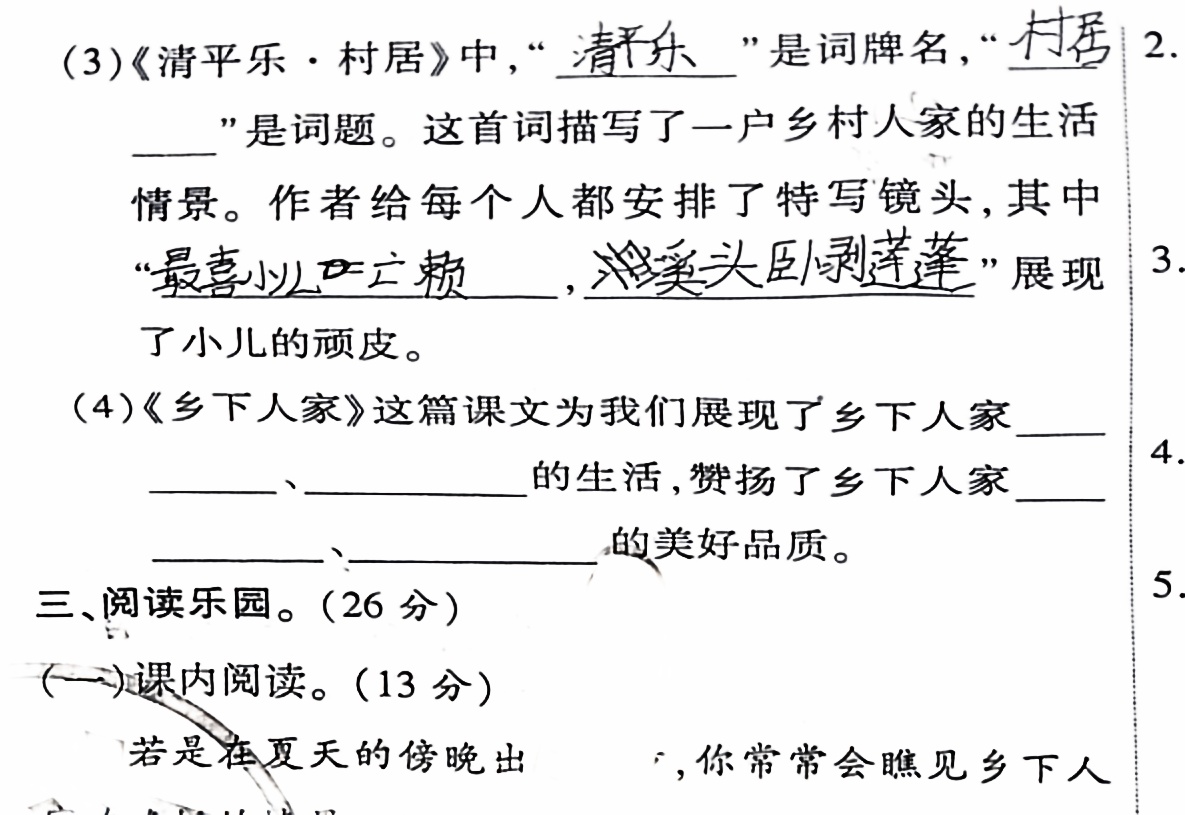 (3)《清平乐·村居》中,“清平乐”是词牌名,“村居 2.
”是词题。这首词描写了一户乡村人家的生活
情景。作者给每个人都安排了特写镜头,其中
“最喜小儿亡赖,溪头卧剥莲蓬”展现 3.
了小儿的顽皮。
(4)《乡下人家》这篇课文为我们展现了乡下人家
、的生活,赞扬了乡下人家 4.
、的美好品质。
三、阅读乐园。(26 分) 5.
(一)课内阅读。(13 分)
若是在夏天的傍晚出 ,你常常会瞧见乡下人